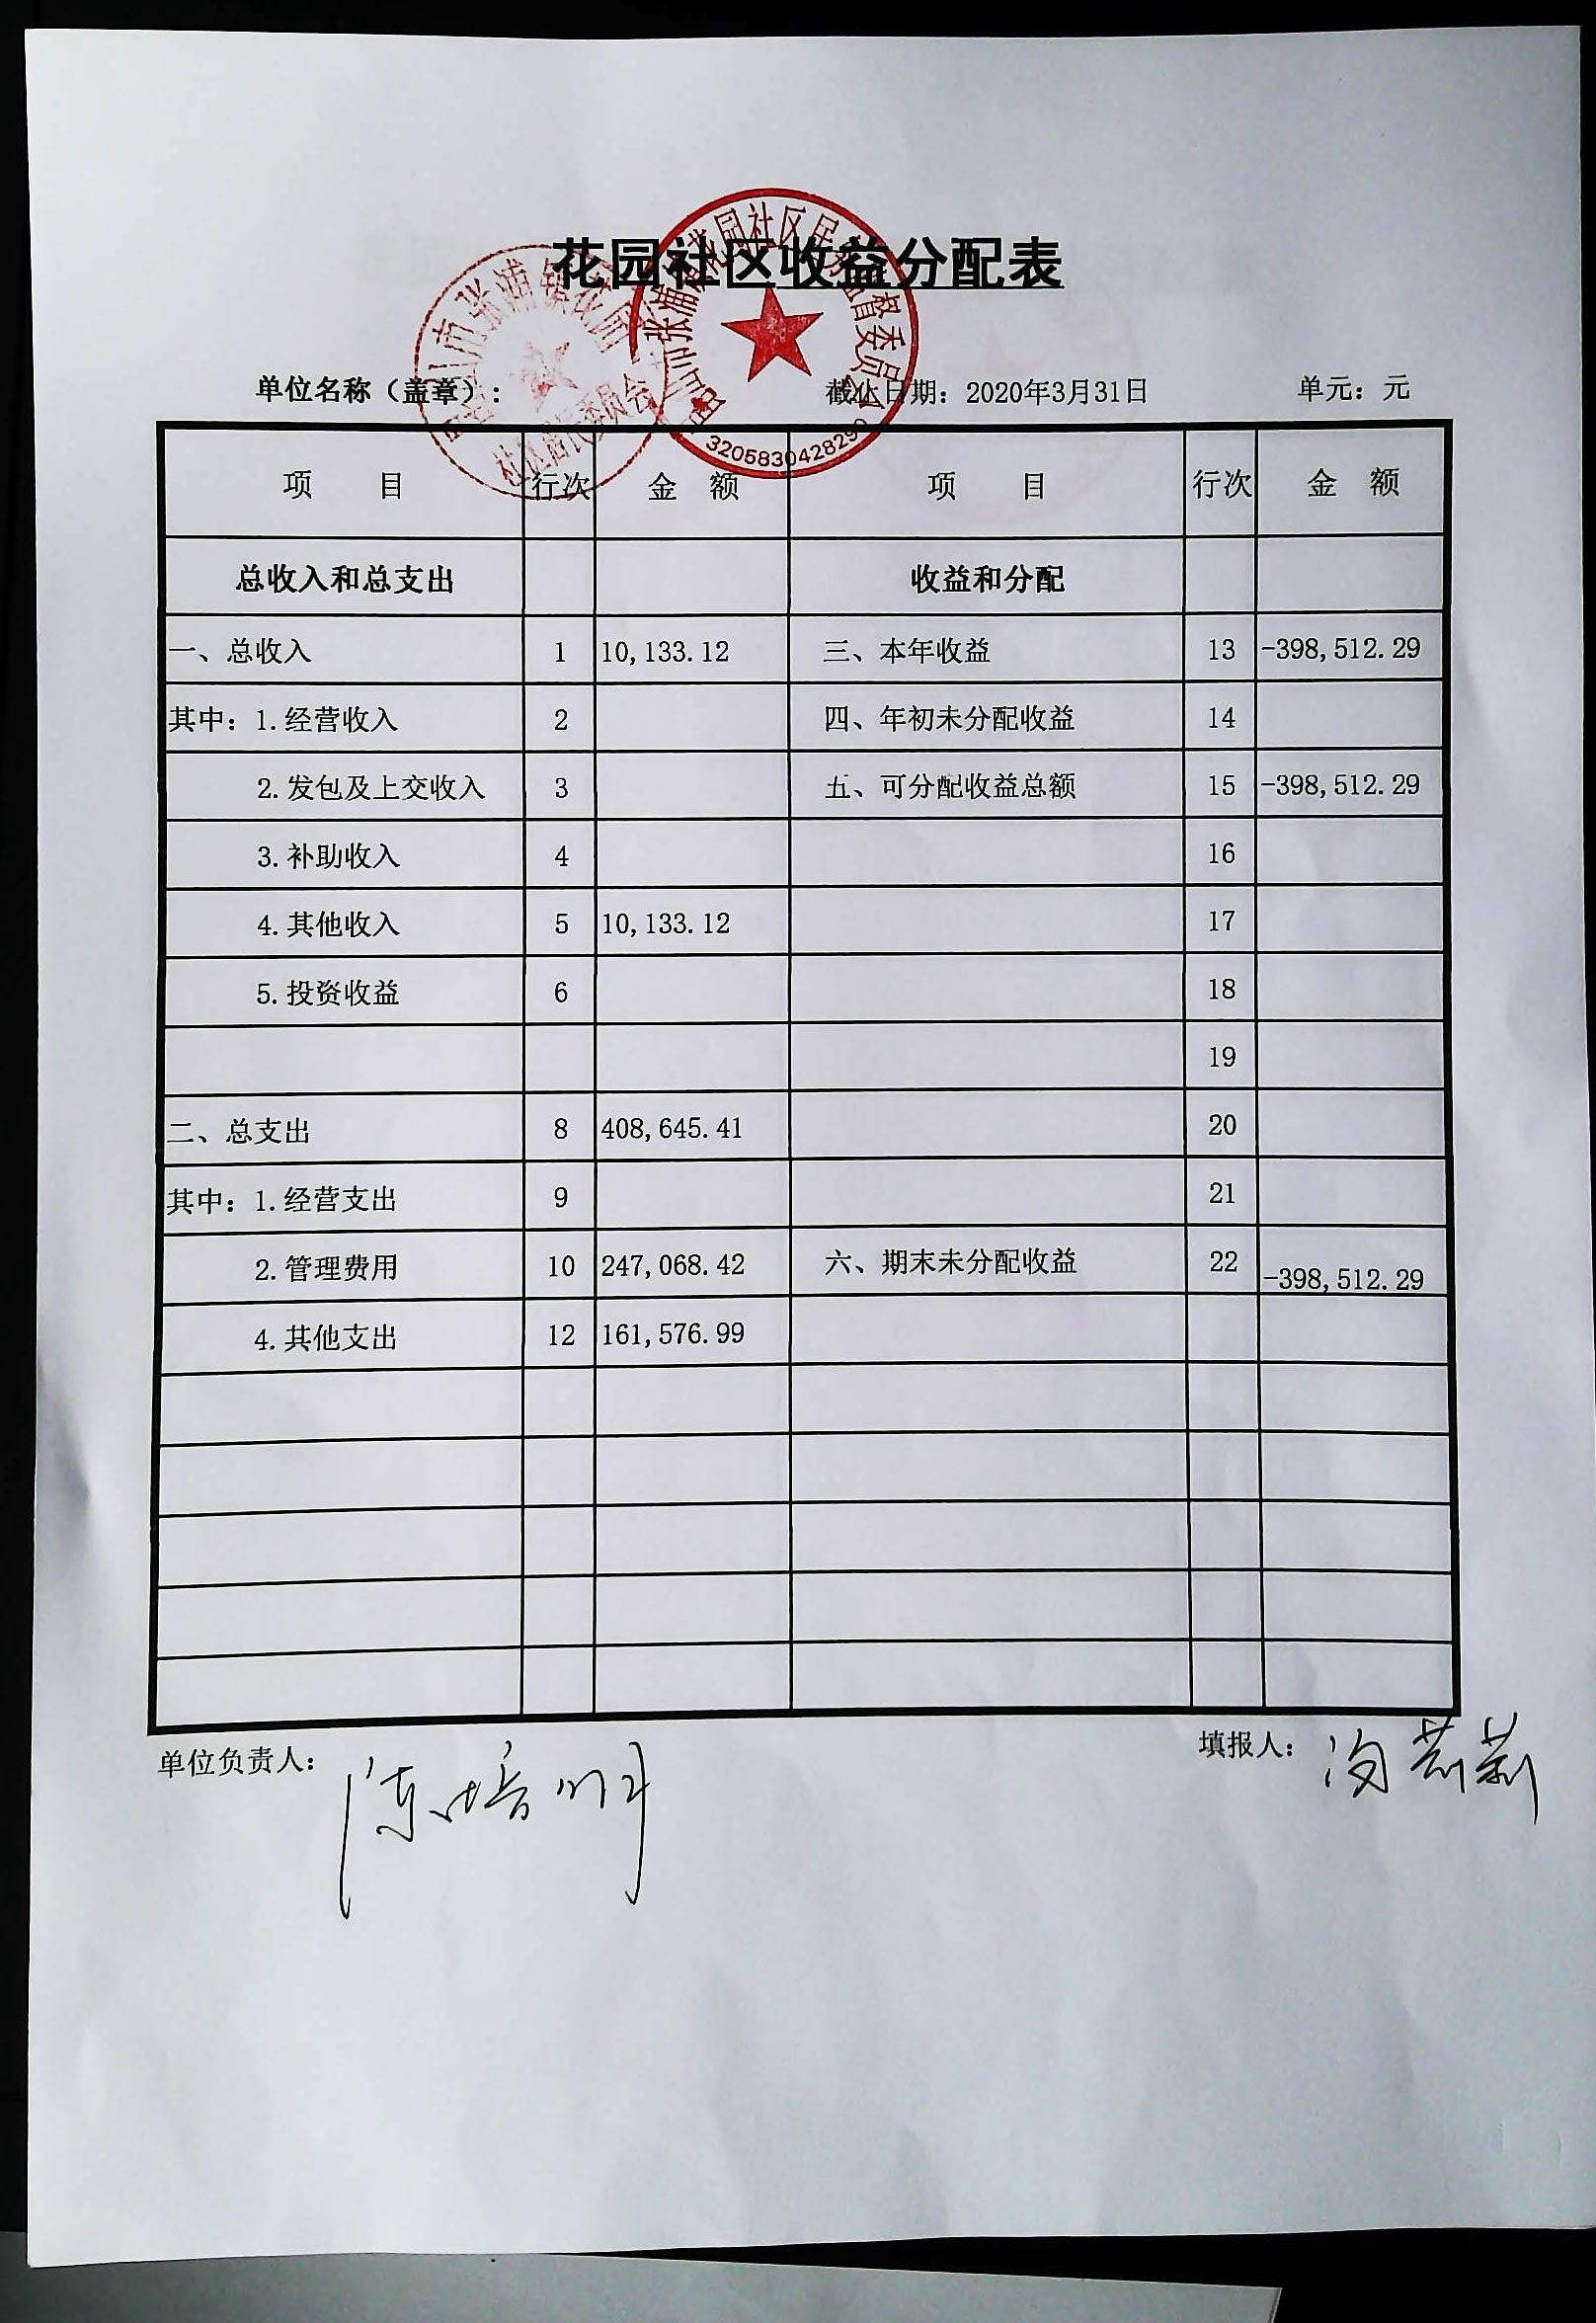 花园社区收益分配表
单位名称（盖章）： 截止日期：2020年3月31日 单元：元
3205830428290
项 目 行次 金 额 项 目 行次 金 额
总收入和总支出 收益和分配
一、总收入 1 10,133.12 三、本年收益 13 -398,512.29
其中：1.经营收入 2 四、年初未分配收益 14
2.发包及上交收入 3 五、可分配收益总额 15 -398,512.29
3.补助收入 4 16
4.其他收入 5 10,133.12 17
5.投资收益 6 18
19
二、总支出 8 408,645.41 20
其中：1.经营支出 9 21
2.管理费用 10 247,068.42 六、期末未分配收益 22 -398,512.29
4.其他支出 12 161,576.99
单位负责人： 陈培明 填报人：